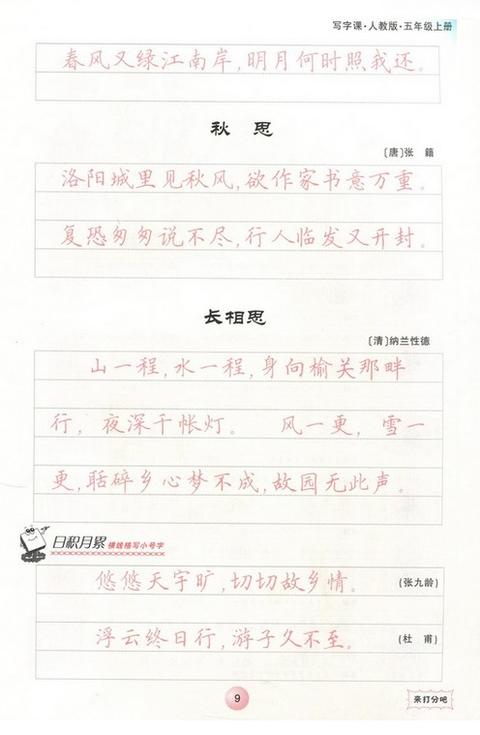 写字课·人教版·五年级上册
春风又绿江南岸,明月何时照我还。
秋 思
〔唐〕张 籍
洛阳城里见秋风,欲作家书意万重。
复恐匆匆说不尽,行人临发又开封。
长相思
〔清〕纳兰性德
山一程,水一程,身向榆关那畔
行,夜深千帐灯。 风一更,雪一
更,聒碎乡心梦不成,故园无此声。
日积月累 横线格写小号字
悠悠天宇旷,切切故乡情。 (张九龄)
浮云终日行,游子久不至。 (杜 甫)
9
来打分吧